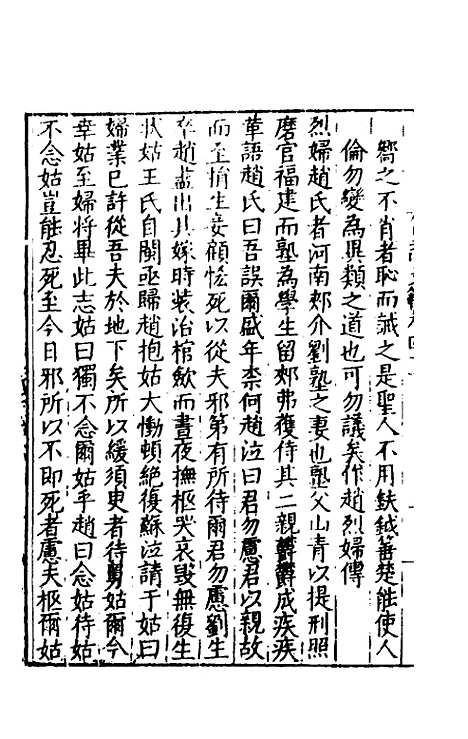 嚮之不肖者恥而誡之是聖人不用鈇鉞箠楚能使人
倫勿變為異類之道也可勿議矣作趙烈婦傳
烈婦趙氏者河南郟介劉塾之妻也塾父山青以提刑照
磨官福建而塾為學生留郟弗獲侍其二親鬱鬱成疾疾
革語趙氏曰吾誤爾盛年柰何趙泣曰君勿慮君以親故
而至捐生妾顧惜死以從夫邪第有所待爾君勿慮劉生
卒趙盡出其嫁時裝治棺歛而晝夜撫柩哭哀毀無復生
狀姑王氏自閩亟歸趙抱姑大慟頓絕復蘇泣請于姑曰
婦業已許從吾夫於地下矣所以緩須臾者待舅姑爾今
幸姑至婦將畢此志姑曰獨不念爾姑乎趙曰念姑待姑
不念姑豈能忍死至今日邪所以不即死者慮夫柩爾姑